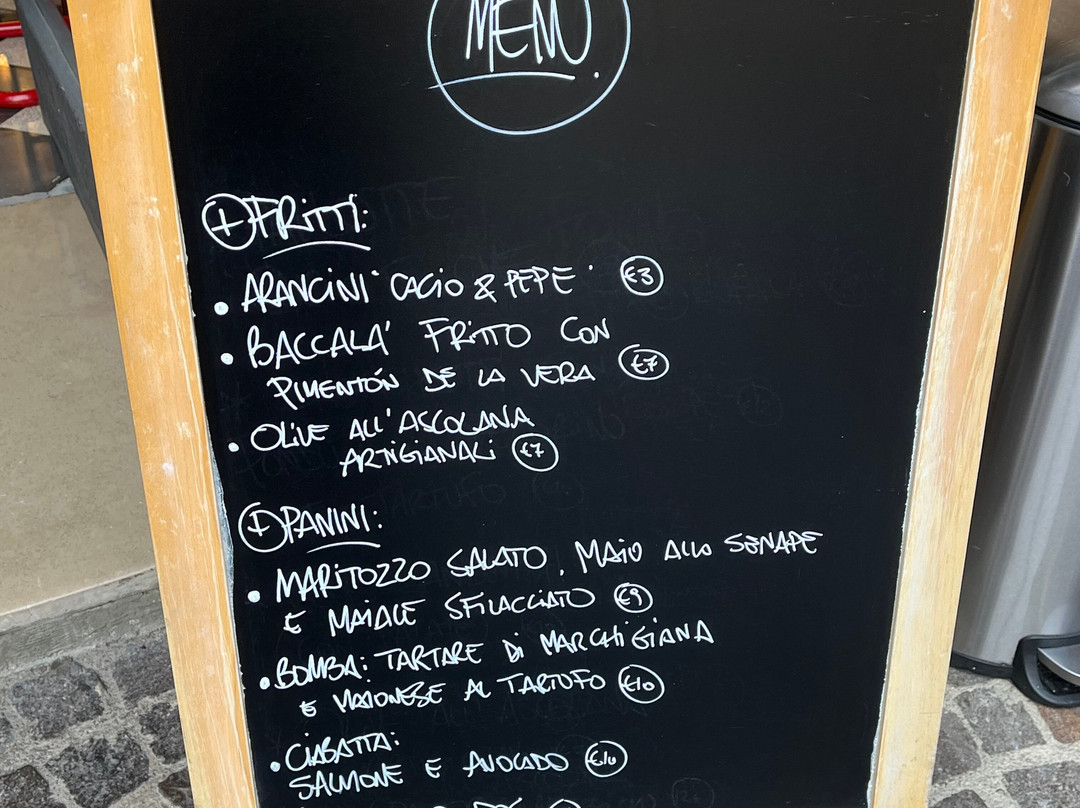 MENÙ.
FRITTI:
ARANCINI "CACIO & PEPE" €3
BACCALA' FRITTO CON
PIMENTÓN DE LA VERA €7
OLIVE ALL'ASCOLANA
ARTIGIANALI €7
PANINI:
MARITOZZO SALATO, MAIO ALLO SENAPE
E MAIALE SFILACCIATO €9
BOMBA: TARTARE DI MARCHIGIANA
E MAIONESE AL TARTUFO €10
CIABATTA:
SALMONE E AVOCADO €10